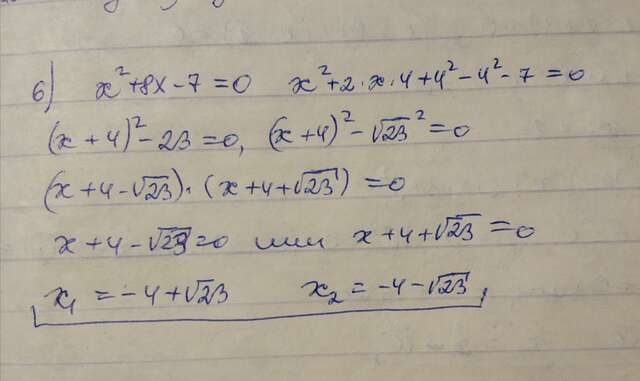 6) x²+8x-7=0 x²+2·x·4+4²-4²-7=0
(x+4)²-23=0, (x+4)²-√23²=0
(x+4-√23)·(x+4+√23)=0
x+4-√23=0 или x+4+√23=0
x₁=-4+√23 x₂=-4-√23,